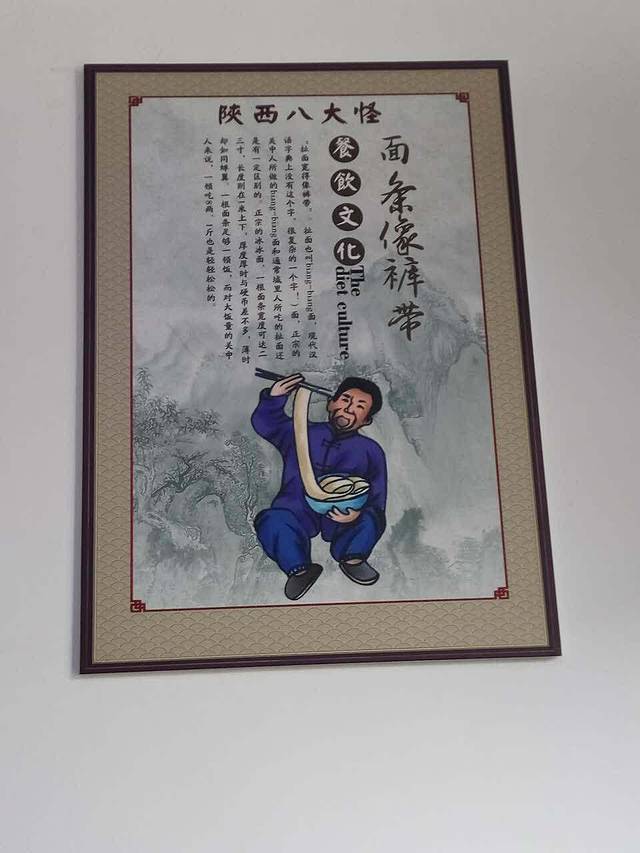 陕西八大怪
面条像裤带
餐饮文化
The
diet culture
"扯面宽得像裤带。"扯面也叫biang-biang面,现代汉
语字典上没有这个字,很复杂的一个字!)面,正宗的
关中人所做的biang-biang面和通常城里人所吃的扯面还
是有一定区别的。正宗的冰冰面,一根面条宽度可达二
三寸,长度则在一米上下,厚度厚时与硬币差不多,薄时
却如同蝉翼。一根面条足够一顿饭,而对大饭量的关中
人来说,一顿吃8两、1斤也是轻轻松松的。